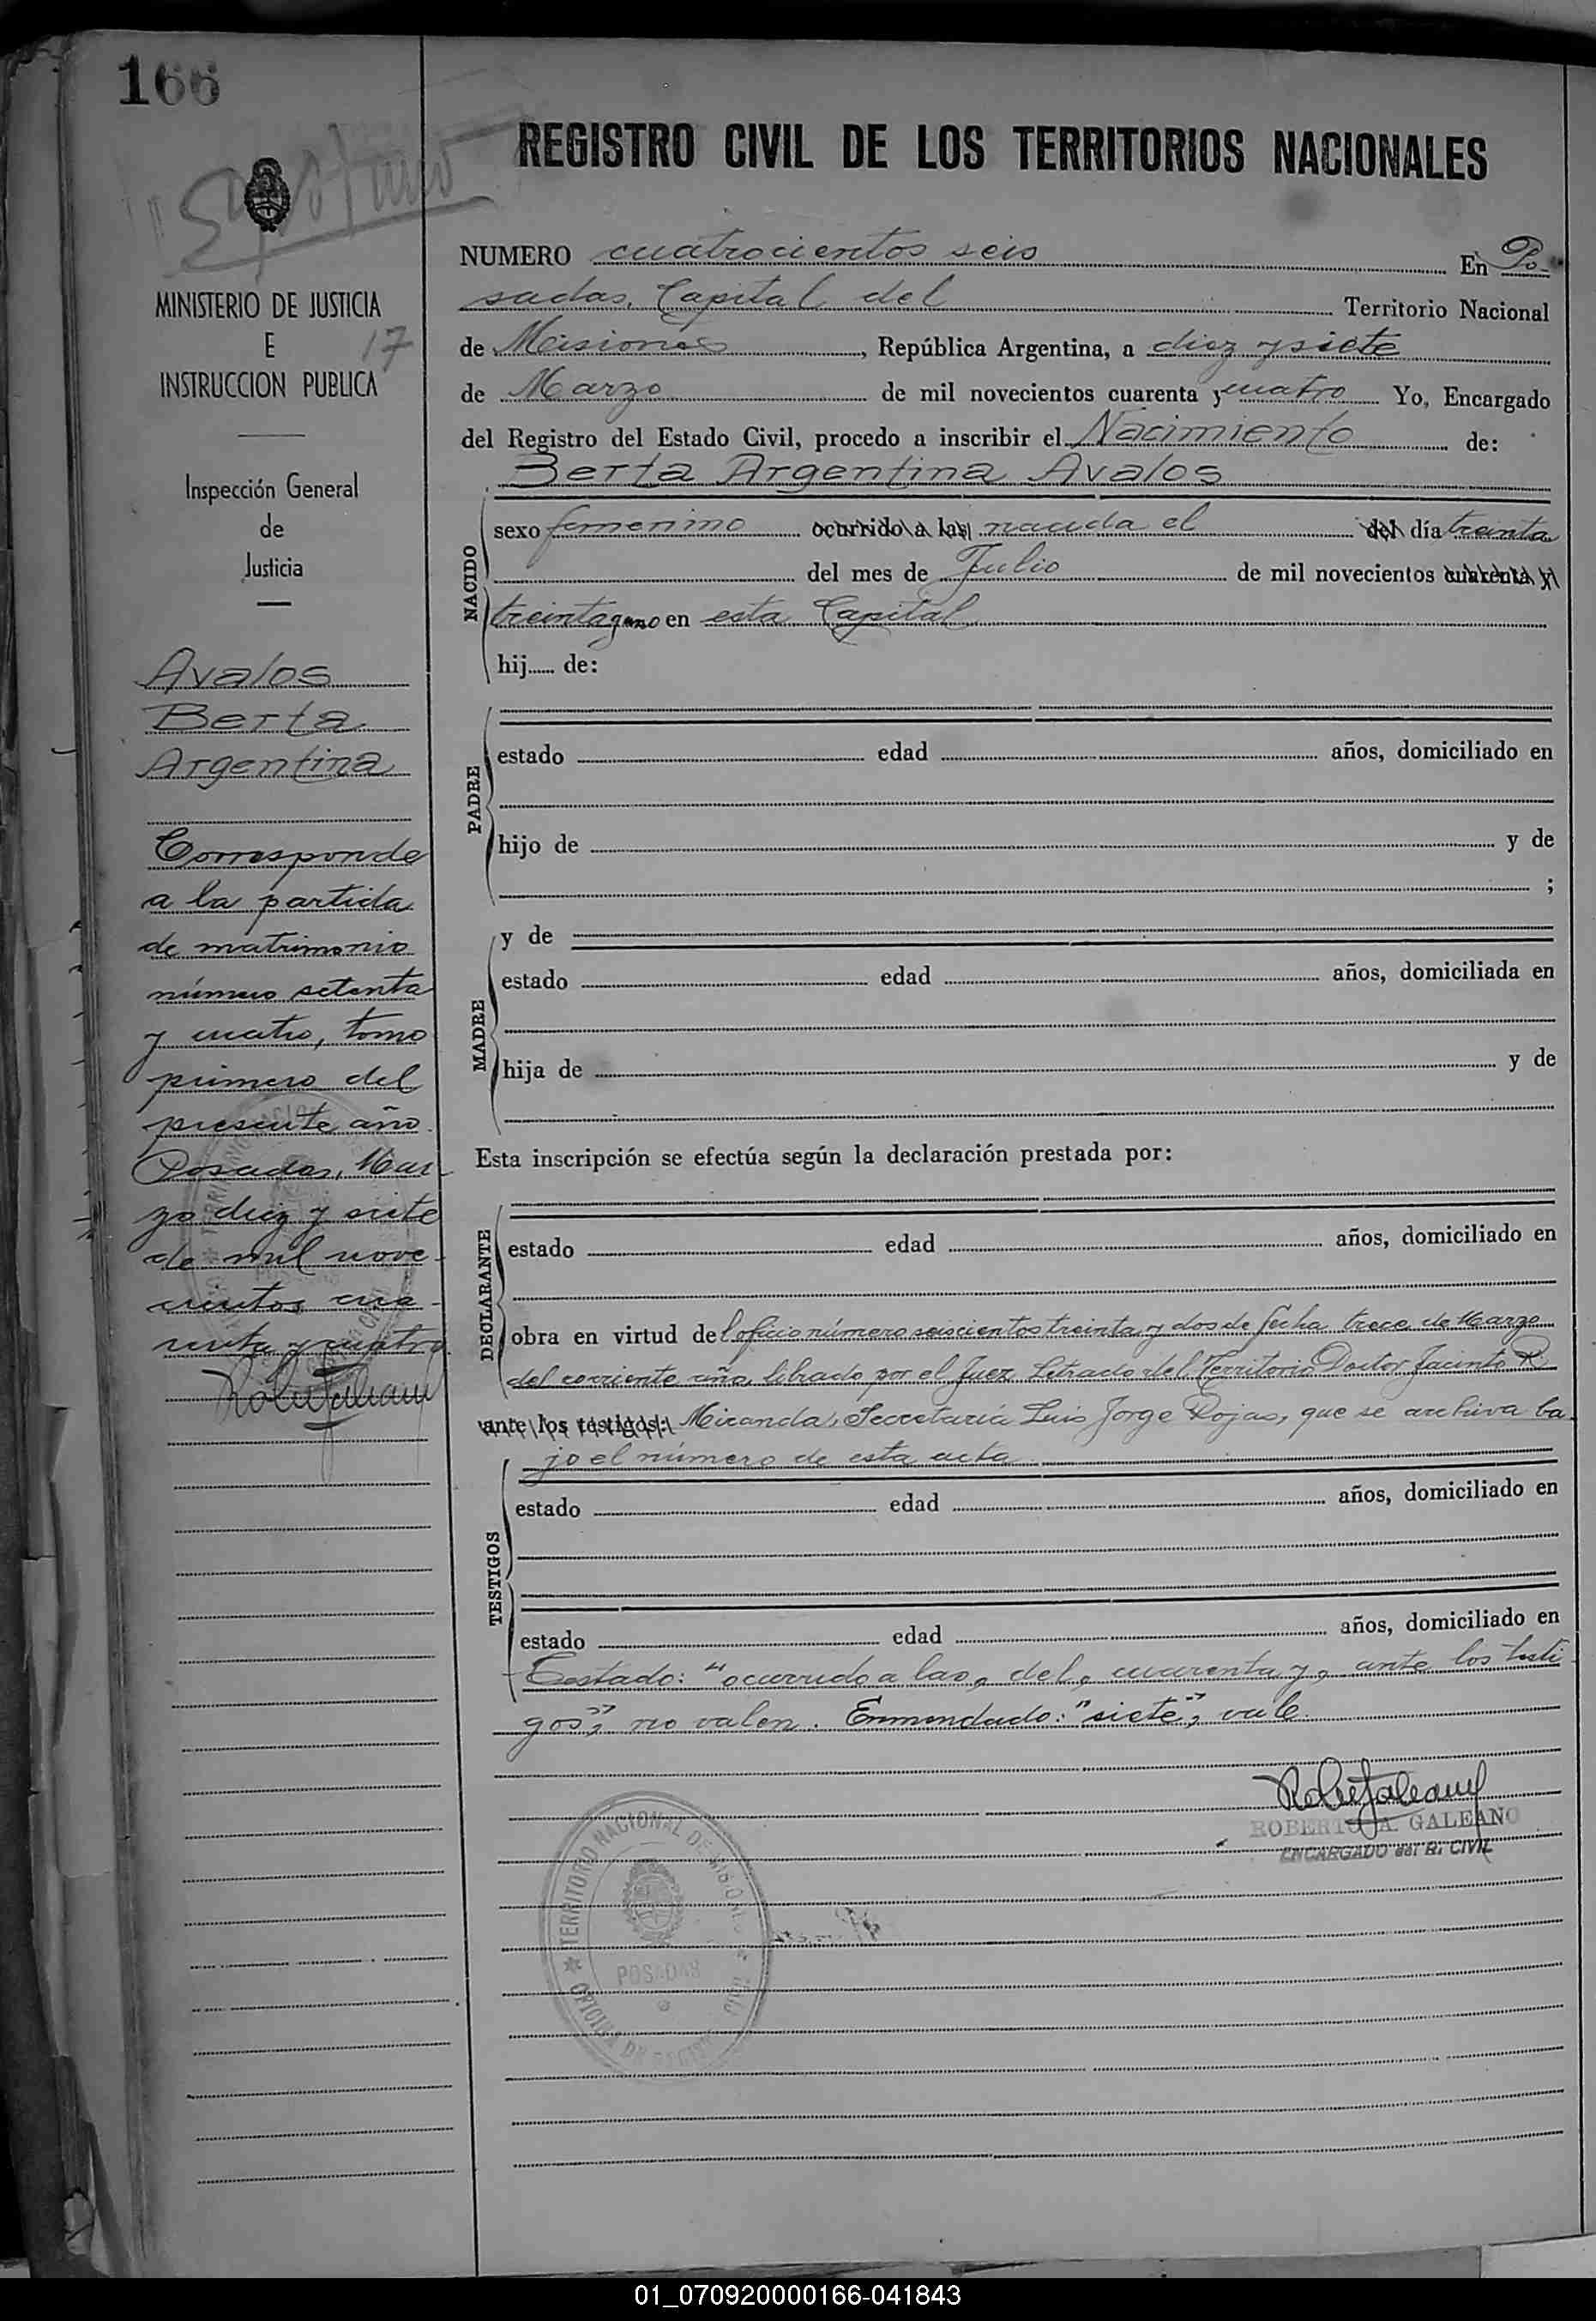 166
REGISTRO CIVIL DE LOS TERRITORIOS NACIONALES
MINISTERIO DE JUSTICIA
E
17
INSTRUCCION PUBLICA
Inspección General
de
Justicia
Avalos
Berta
Argentina
Corresponde
a la partida
de matrimonio
número setenta
y cuatro, tomo
primero del
presente año.
Posadas, Mar-
zo diez y siete
de mil nove-
cientos cua-
renta y cuatro
NUMERO cuatrocientos seis En Po-
sadas, Capital del Territorio Nacional
de Misiones, República Argentina, a diez y siete
de Marzo de mil novecientos cuarenta y cuatro Yo, Encargado
del Registro del Estado Civil, procedo a inscribir el Nacimiento de:
Berta Argentina Avalos
NACIDO
sexo femenino ocurrido a las nacida el del día treinta
del mes de Julio de mil novecientos cuarenta y
treinta y uno en esta Capital
hij...... de:
PADRE
estado edad años, domiciliado en
hijo de y de
;
MADRE
y de
estado edad años, domiciliada en
hija de y de
Esta inscripción se efectúa según la declaración prestada por:
DECLARANTE
estado edad años, domiciliado en
obra en virtud del oficio número seiscientos treinta y dos de fecha trece de Marzo
del corriente año, librado por el Juez Letrado del Territorio Doctor Jacinto R.
ante los testigos: Miranda, Secretaría Luis Jorge Rojas, que se archiva ba-
jo el número de esta acta
TESTIGOS
estado edad años, domiciliado en
estado edad años, domiciliado en
Testado: "ocurrido a las, del, cuarenta y, ante los testi-
gos", no valen. Enmendado: "siete", vale.
ROBERTO A. GALEANO
ENCARGADO del R. CIVIL
TERRITORIO NACIONAL DE MISIONES
POSADAS
OFICINA DE
01_070920000166-041843